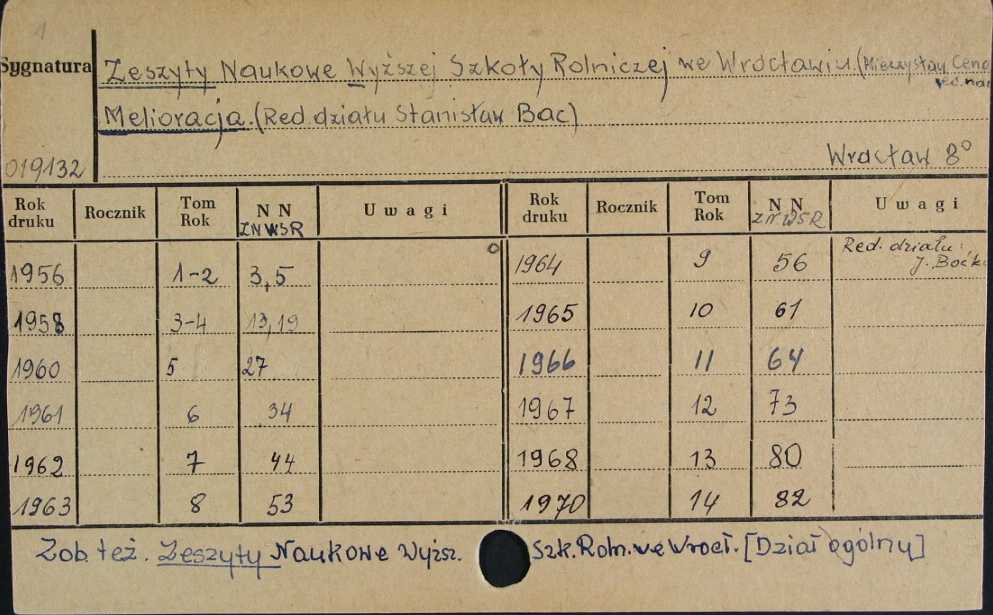 1
Sygnatura
Zeszyty Naukowe Wyższej Szkoły Rolniczej we Wrocławiu. (Mieczysław Cena
Melioracja. (Red. działu Stanisław Bac)
019132
Wrocław 8°
Rok druku Rocznik Tom Rok NN ZNWSR Uwagi Rok druku Rocznik Tom Rok NN ZNWSR Uwagi
1956 1-2 3,5 1964 9 56 Red. działu:
1958 3-4 13,19 1965 10 61
1960 5 27 1966 11 64
1961 6 34 1967 12 73
1962 7 44 1968 13 80
1963 8 53 1970 14 82
Zob. też. Zeszyty Naukowe Wyższ. Szk. Roln. we Wrocł. [Dział ogólny]